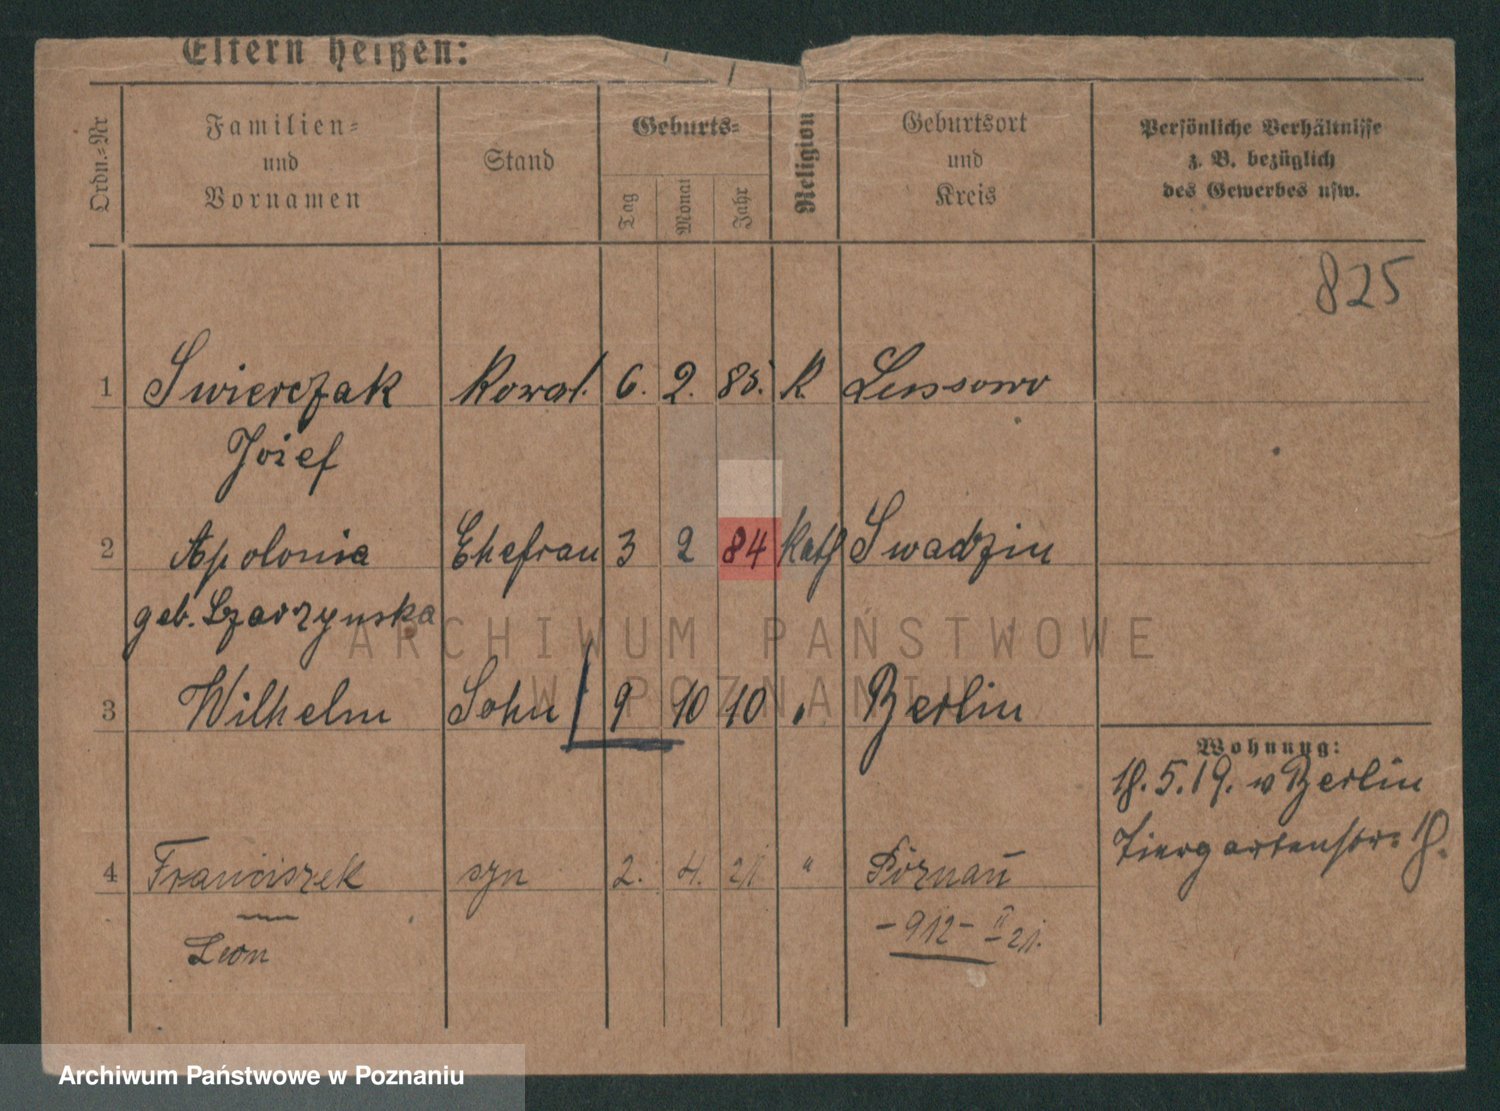 Eltern heißen:
Ordn.-Nr
Familien-
und
Vornamen
Stand
Geburts-
Tag
Monat
Jahr
Religion
Geburtsort
und
Kreis
Persönliche Verhältnisse
z. B. bezüglich
des Gewerbes usw.
825
1 Swierczak Kowal. 6. 2. 85. K. Lussowo
Josef
2 Apolonia Ehefrau 3 2 84 Kath Swadzin
geb. Szarzynska
3 Wilhelm Sohn 9 10 10 " Berlin
Wohnung:
18.5.19. v Berlin
Tiergartenstr. 18.
4 Franciszek syn 2. 4. 21. " Poznań
Leon
- 912 - II 21.
ARCHIWUM PAŃSTWOWE
W POZNANIU
Archiwum Państwowe w Poznaniu